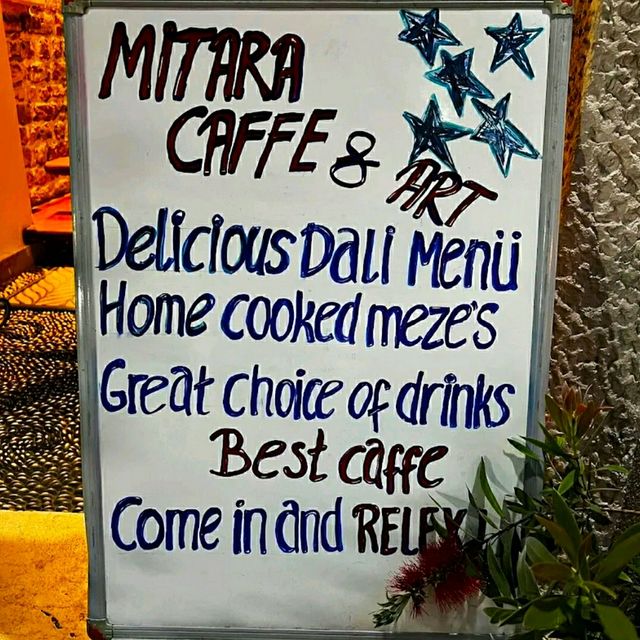 MITARA
CAFFE &
ART
Delicious Dali Menü
Home cooked meze's
Great choice of drinks
Best caffe
Come in and RELAX !